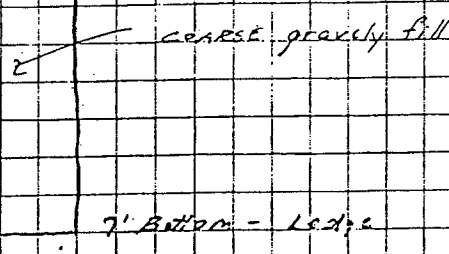 coarse gravely fill
2
7' Bottom - Ledge